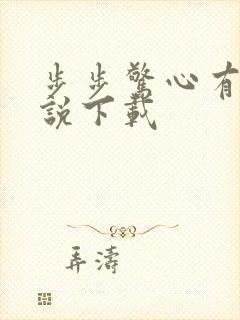 步步驚心有
說下載
弄濤